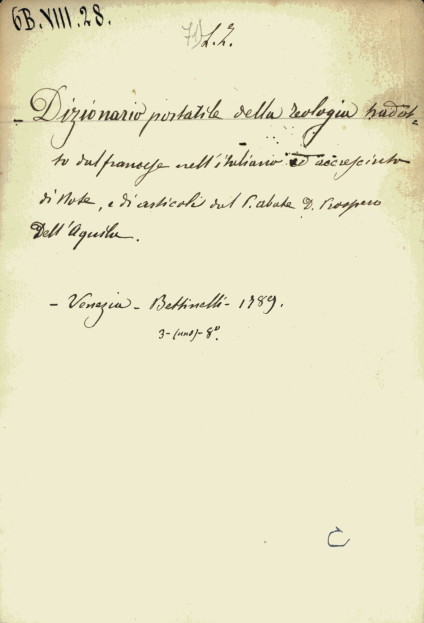 6B.VIII.28.
70 L.L.
- Dizionario portatile della teologia tradot-
to dal francese nell'italiano ed accresciuto
di Note, e di articoli dal P. abate D. Prospero
Dell'Aquila.
- Venezia - Bettinelli - 1789.
3-(uno)-8°.
C